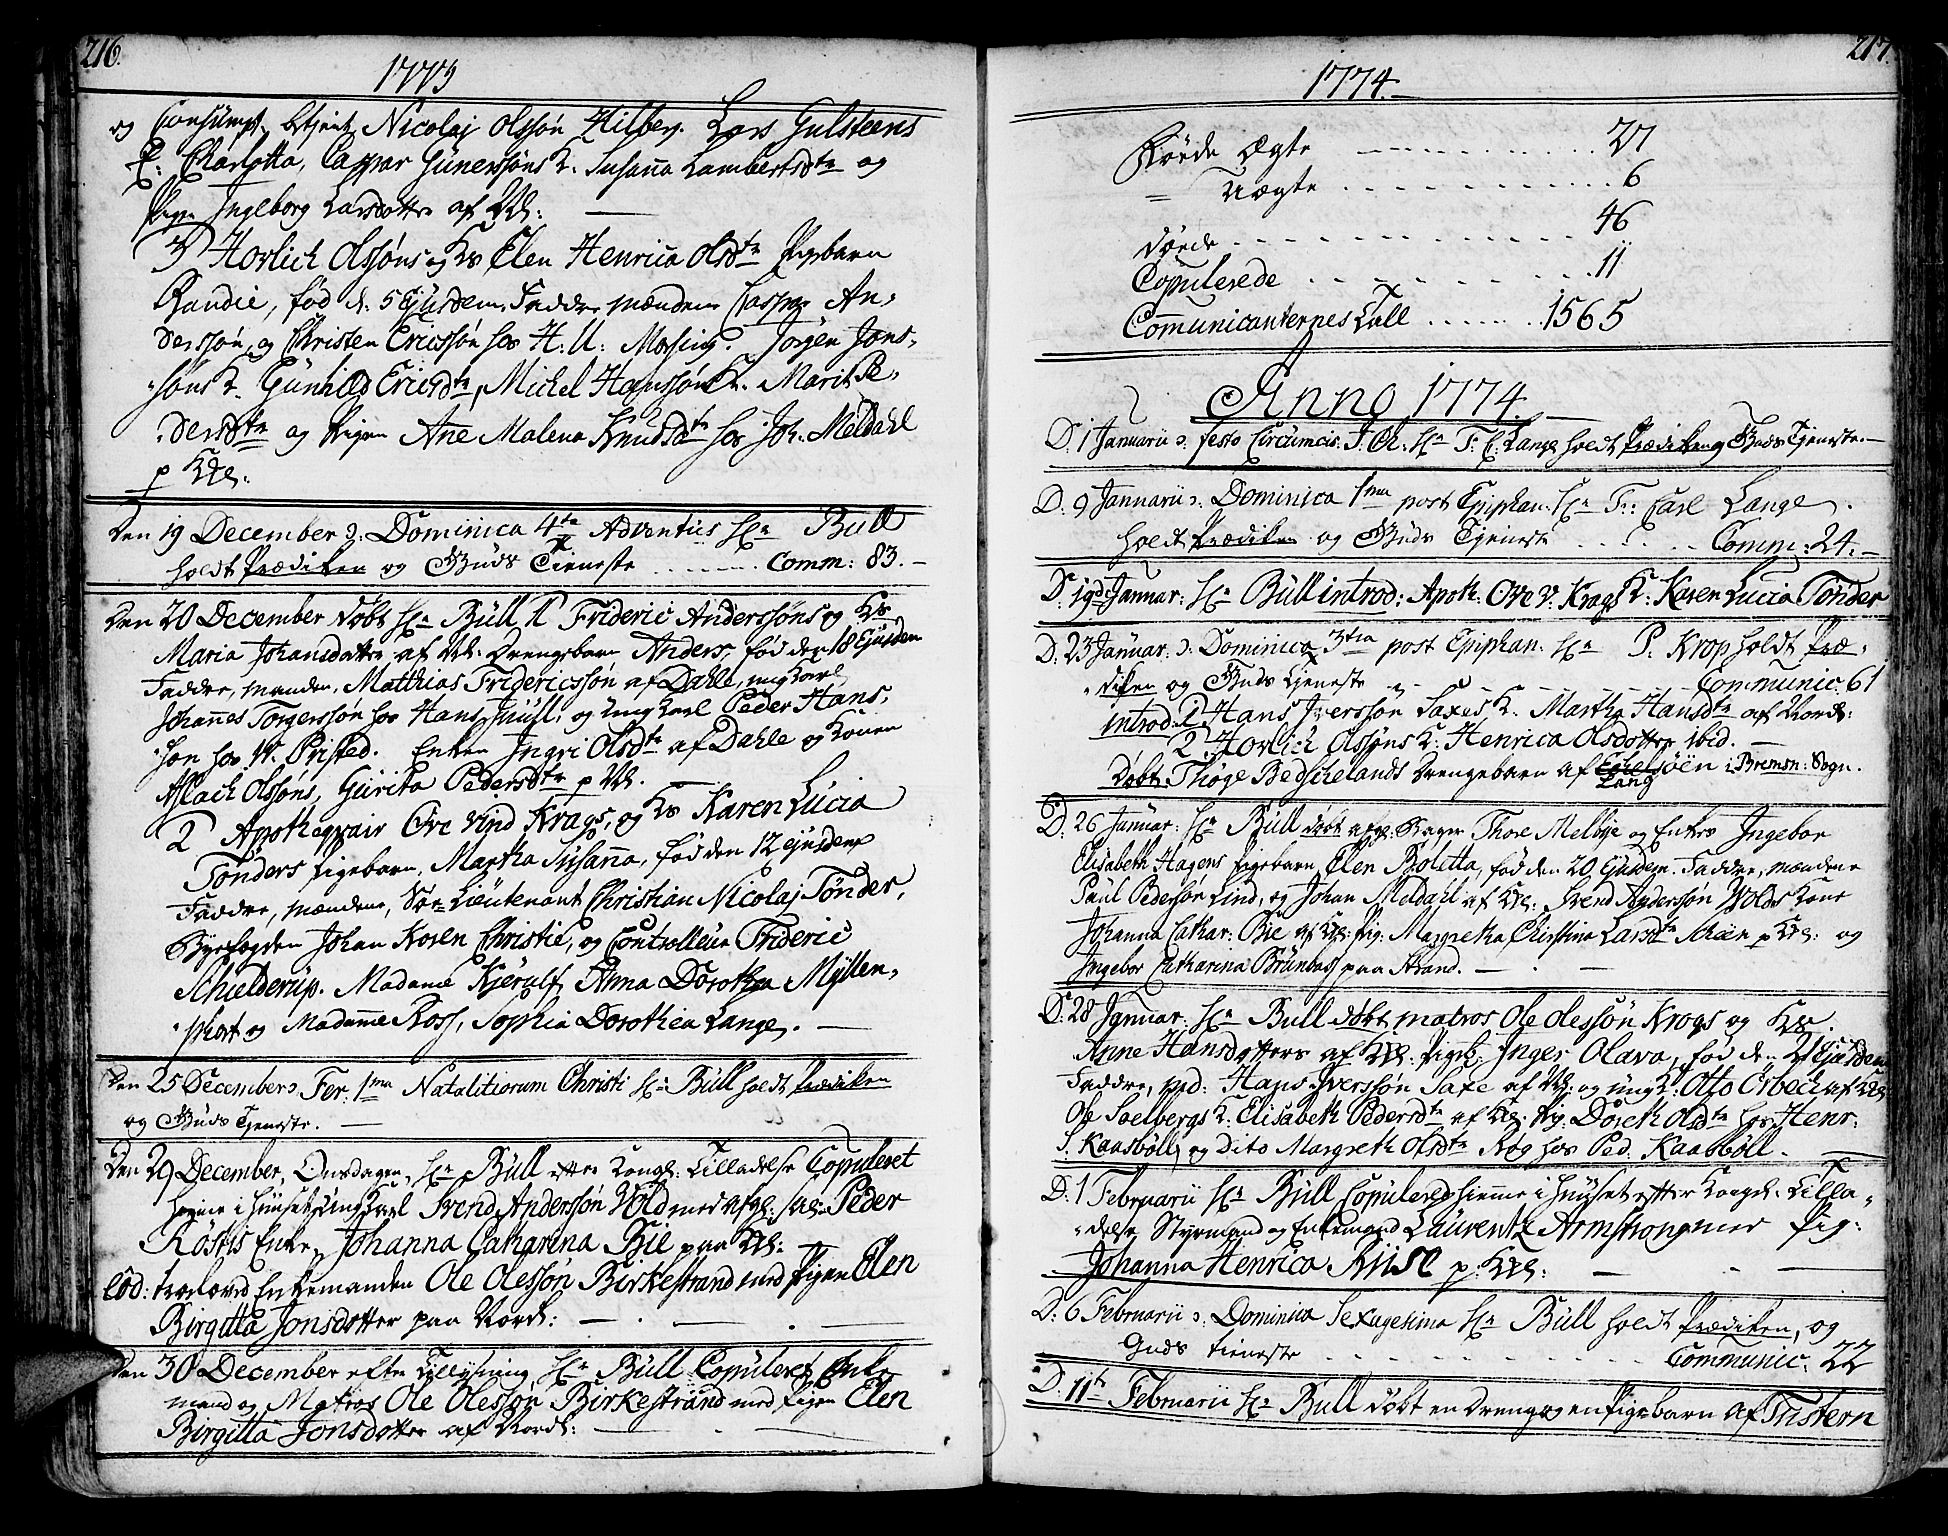 216.
1773
og Consumpt. betjent Nicolaj Olssøn Hilber. Lars Gulsteens
E: Charlotta, Caspar Günerssøns K. Susanna Lambertsdtr og
Pigen Ingeborg Larsdotter af Kl:
3 Horlich Olssøns og Ks Elen Henrica Olsdtr Pigebarn
Randie, fød d. 5 Ejusdem, Faddre, mændene Caspar An-
derssøn, og Christen Ericssøn hos H: U: Mossing. Jørgen Jons-
søns K. Günild Ericsdtr, Michel Hanssøns K. Marit Pe-
dersdtr og Pigen Ane Malena Knudsdtr hos Joh. Meldahl
p Kl:
Den 19 December ɔ: Dominica 4ta Adventus Hr Bull
holdt Prædiken og Guds Tieneste ........ Comm: 83.
Den 20 December døbt Hr Büll 1 Frideric Anderssøns og Ks
Maria Johansdatter af Kl: Drengebarn Anders, fød den 18 Ejusdem
Faddre, manden, Matthias Fridericssøn af Dahle, ungkarl
Johannes Torgerssøn hos Hans Juull, og ungkarl Peder Hans-
søn hos W. Pristed. Enken Ingri Olsdtr af Dahle og Konen
Aslach Olssøns, Gürita Pedersdtr p Kl.
2 Apothequair Ove Vind Krags, og Ks Karen Lucia
Tønders Pigebarn, Martha Susanna, fød den 12 ejusdem
Faddre, mændene, Søe-Lieutenant Christian Nicolaj Tønder,
Byefogden Johan Koren Christie, og Controlleur Frideric
Schielderup. Madame Kjerulf, Anna Dorothea Myllen-
phort og Madamme Ross, Sophia Dorothea Lange.
Den 25 December ɔ. Fer: 1ma Natalitiorum Christi Hr Büll holdt Prædiken
og Guds Tjeneste.
Den 29 December, Onsdagen, Hr Büll efter Kongl: Tilladelse Copuleret
hjemme i Huuset ungkarl Svend Anderssøn Vold med afgl: Sal: Peder
Röstis Enke, Johanna Catharina Bie paa Kl:
eod: troloved Enkemanden Ole Olessøn Birkestrand med Pigen Elen
Birgitta Jonsdotter paa Nordl:
Den 30 December efter Tillysning Hr Bull Copuleret Enke-
mand og Matros Ole Olessøn Birkestrand med Pigen Elen
Birgitta Jonsdotter af Nordl:
217.
1774.
Fødde Ægte ........ 27
= Uægte ........ 6
Døde ........ 46
Copulerede ........ 11
Communicanternes Tall ........ 1565
Anno 1774.
D: 1 Januarii ɔ. festo Circumcis: J. Ch: Hr F: C: Lange holdt Prædiken og Guds Tjeneste.
D. 9 Januarii ɔ. Dominica 1ma post Epiphan. Hr Fr: Carl Lange
holdt Prædiken og Guds Tjeneste ...... Comm: 24.
D. 19de Januar: Hr Büll introd: Apoth: Ove V: Krags K: Karen Lucia Tönder
D. 23 Januar: ɔ. Dominica 3tia post Epiphan. Hr P. Krop holdt Præ-
diken og Guds Tjeneste ........ Communic: 61
introd: 1 Hans Iverssøn Saxes K. Martha Hansdtr af Nordl:
2. Horlich Olssøns K: Henrica Olsdotter ibid.
Døbt Thøge Bedschelands Drengebarn af Langöien i Bremsn: Sogn.
D. 26 Januar: Hr Büll døbt afgl: Bager Thore Melbye og Enkes Ingebor
Elisabeth Hagens Pigebarn Elen Boletta, fød den 20 Ejusdem. Faddre, mændene
Paul Pederssøn Lind, og Johan Meldahl af Kl: Svend Anderssøn Wolds Kone
Johanna Cathar: Bie af Kl: Pig: Margretha Christina Larsdtr Schøn p Kl: og
Ingebor Catharina Brünbas paa Strand.
D. 28 Januar: Hr Bull døbt matros Ole Olessøn Krogs og Ks
Anne Hansdotters af Kl: Pigeb: Inger Olava, fød den 21 Ejusdem
Faddre, md: Hans Iverssøn Saxe af Kl: og ungK: Otto Örbech af Kl:
Ole Soelbergs K: Elisabeth Pedersdtr af Kl: Pig: Doreth Olsdtr hos Henr:
S. Kaasböll, og Dito Margreth Olsdtr Røg hos Ped. Kaasböll.
D. 1 Februarii Hr Büll Copulered hjemme i Huuset efter Kongl: Tilla-
delse Styrmand og Enkemand Laurentz Armstrong med Pig:
Johanna Henrica Riise p: Kl:
D: 6 Februarii ɔ. Dominica Sexagesima Hr Büll holdt Prædiken, og
Guds tieneste ........ Communic: 22
D. 11te Februarii Hr Büll døbt en Drenge og en Pigebarn af Tustern